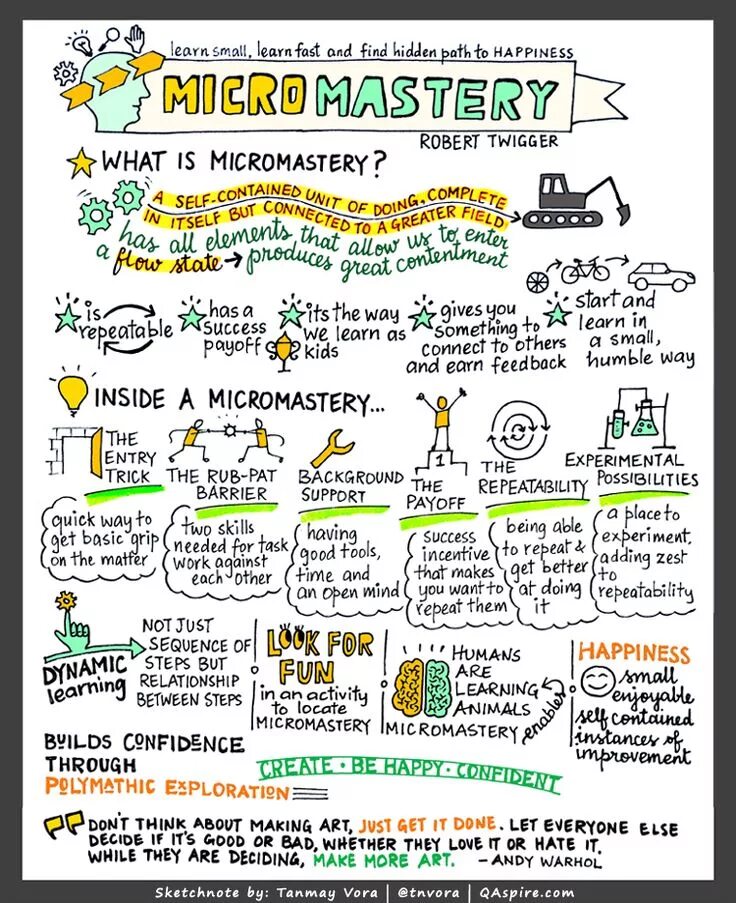 learn small, learn fast and find hidden path to HAPPINESS
MICROMASTERY
ROBERT TWIGGER
WHAT IS MICROMASTERY?
A SELF-CONTAINED UNIT OF DOING, COMPLETE
IN ITSELF BUT CONNECTED TO A GREATER FIELD
has all elements that allow us to enter
a flow state → produces great contentment
is
repeatable
has a
success
payoff
its the way
we learn as
kids
gives you
something to
connect to others
and earn feedback
start and
learn in
a small,
humble way
INSIDE A MICROMASTERY...
THE
ENTRY
TRICK
quick way to
get basic grip
on the matter
THE RUB-PAT
BARRIER
two skills
needed for task
work against
each other
BACKGROUND
SUPPORT
having
good tools,
time and
an open mind
1
THE
PAYOFF
success
incentive
that makes
you want to
repeat them
THE
REPEATABILITY
being able
to repeat &
get better
at doing
it
EXPERIMENTAL
POSSIBILITIES
a place to
experiment,
adding zest
to
repeatability
DYNAMIC
learning
NOT JUST
SEQUENCE OF
STEPS BUT
RELATIONSHIP
BETWEEN STEPS
LOOK FOR
FUN
in an activity
to locate
MICROMASTERY
HUMANS
ARE
LEARNING
ANIMALS
MICROMASTERY enables
HAPPINESS
small
enjoyable
self contained
instances of
improvement
BUILDS CONFIDENCE
THROUGH
POLYMATHIC EXPLORATION
CREATE · BE HAPPY · CONFIDENT
DON'T THINK ABOUT MAKING ART, JUST GET IT DONE. LET EVERYONE ELSE
DECIDE IF IT'S GOOD OR BAD, WHETHER THEY LOVE IT OR HATE IT.
WHILE THEY ARE DECIDING, MAKE MORE ART. - ANDY WARHOL
Sketchnote by: Tanmay Vora | @tnvora | QAspire.com